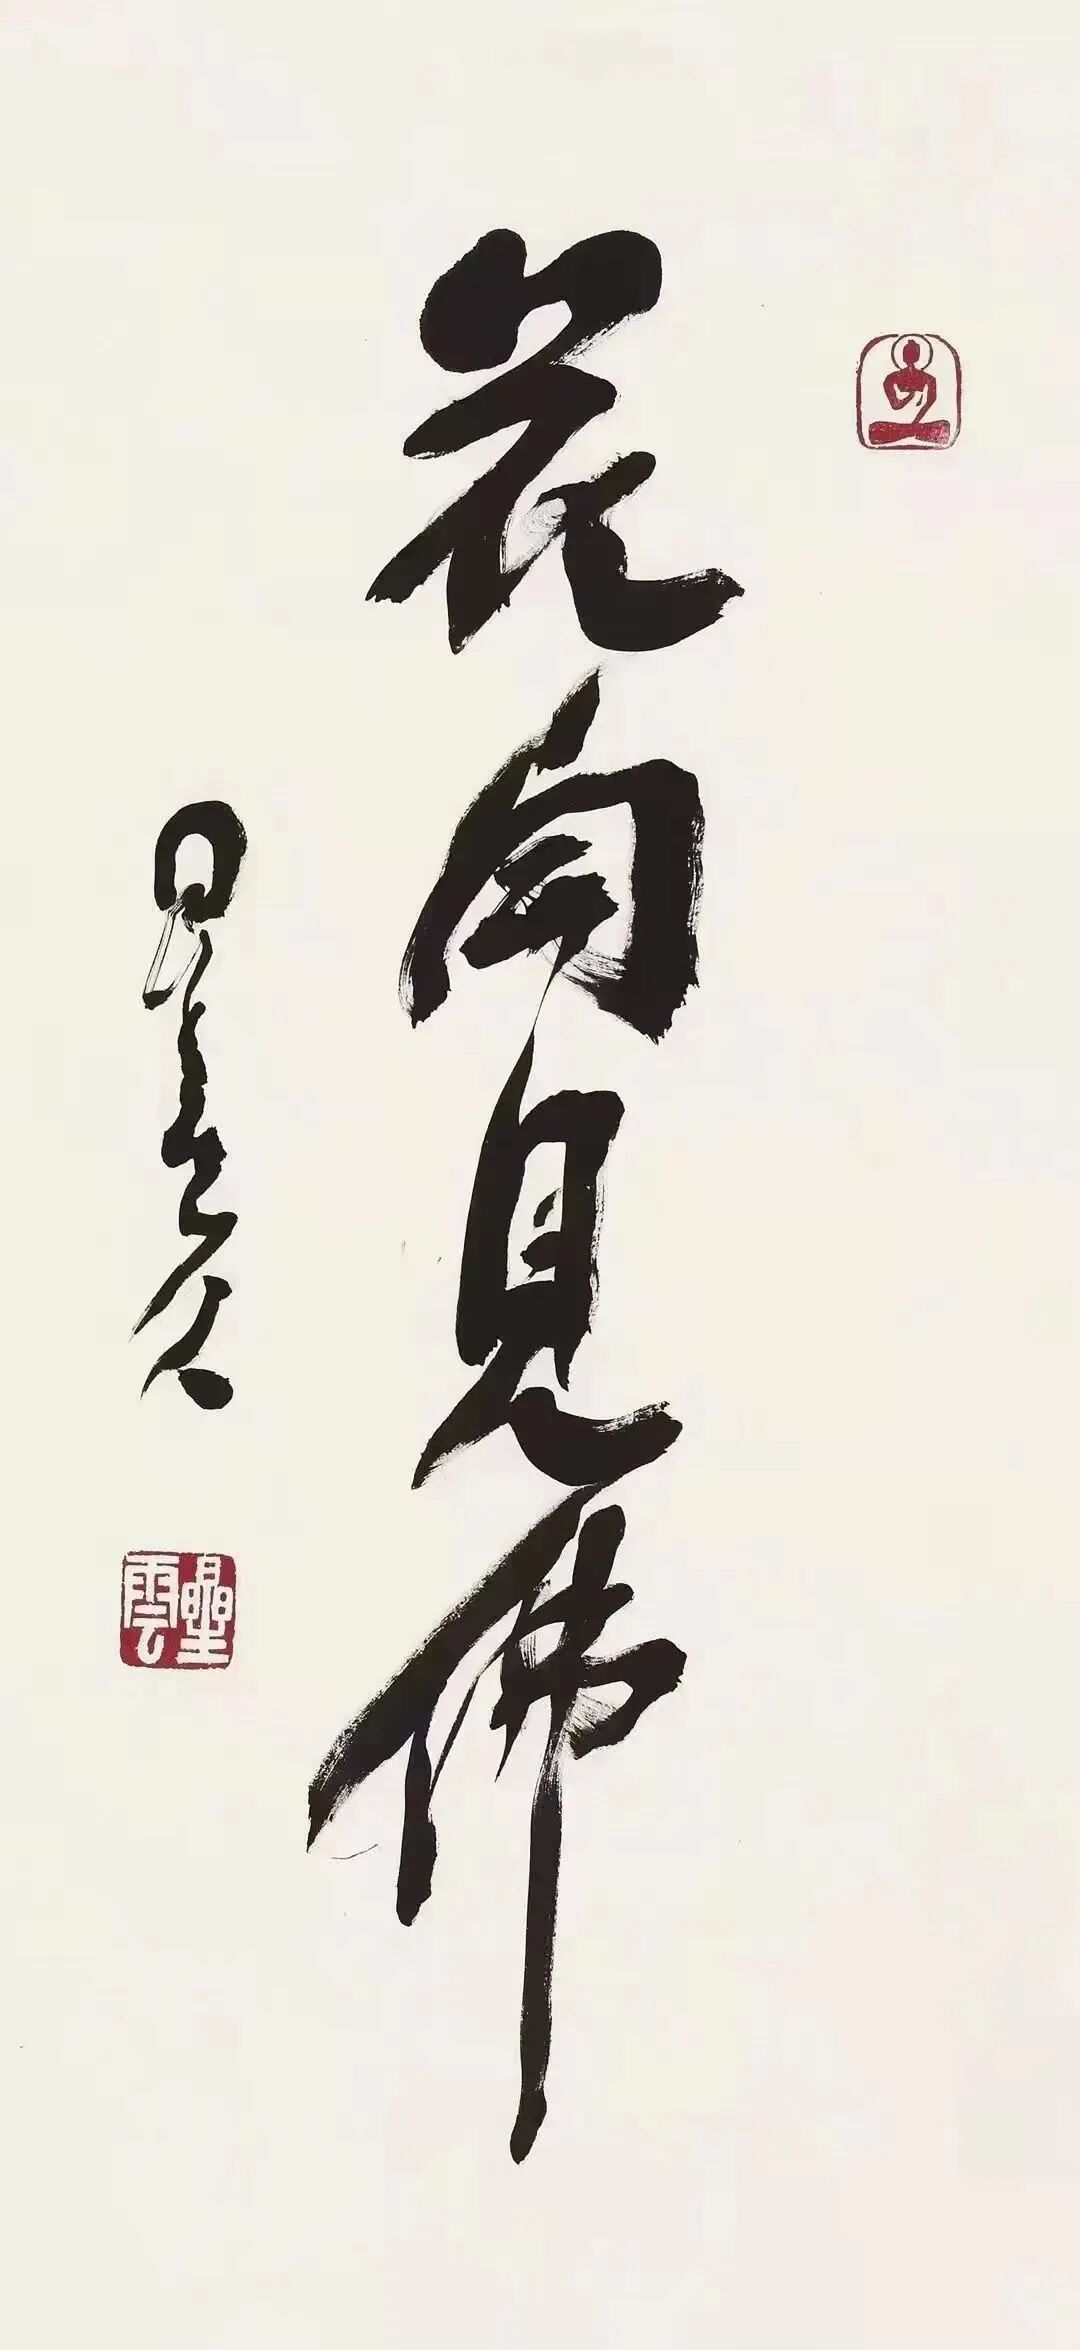 花開見佛
星雲
曐雲